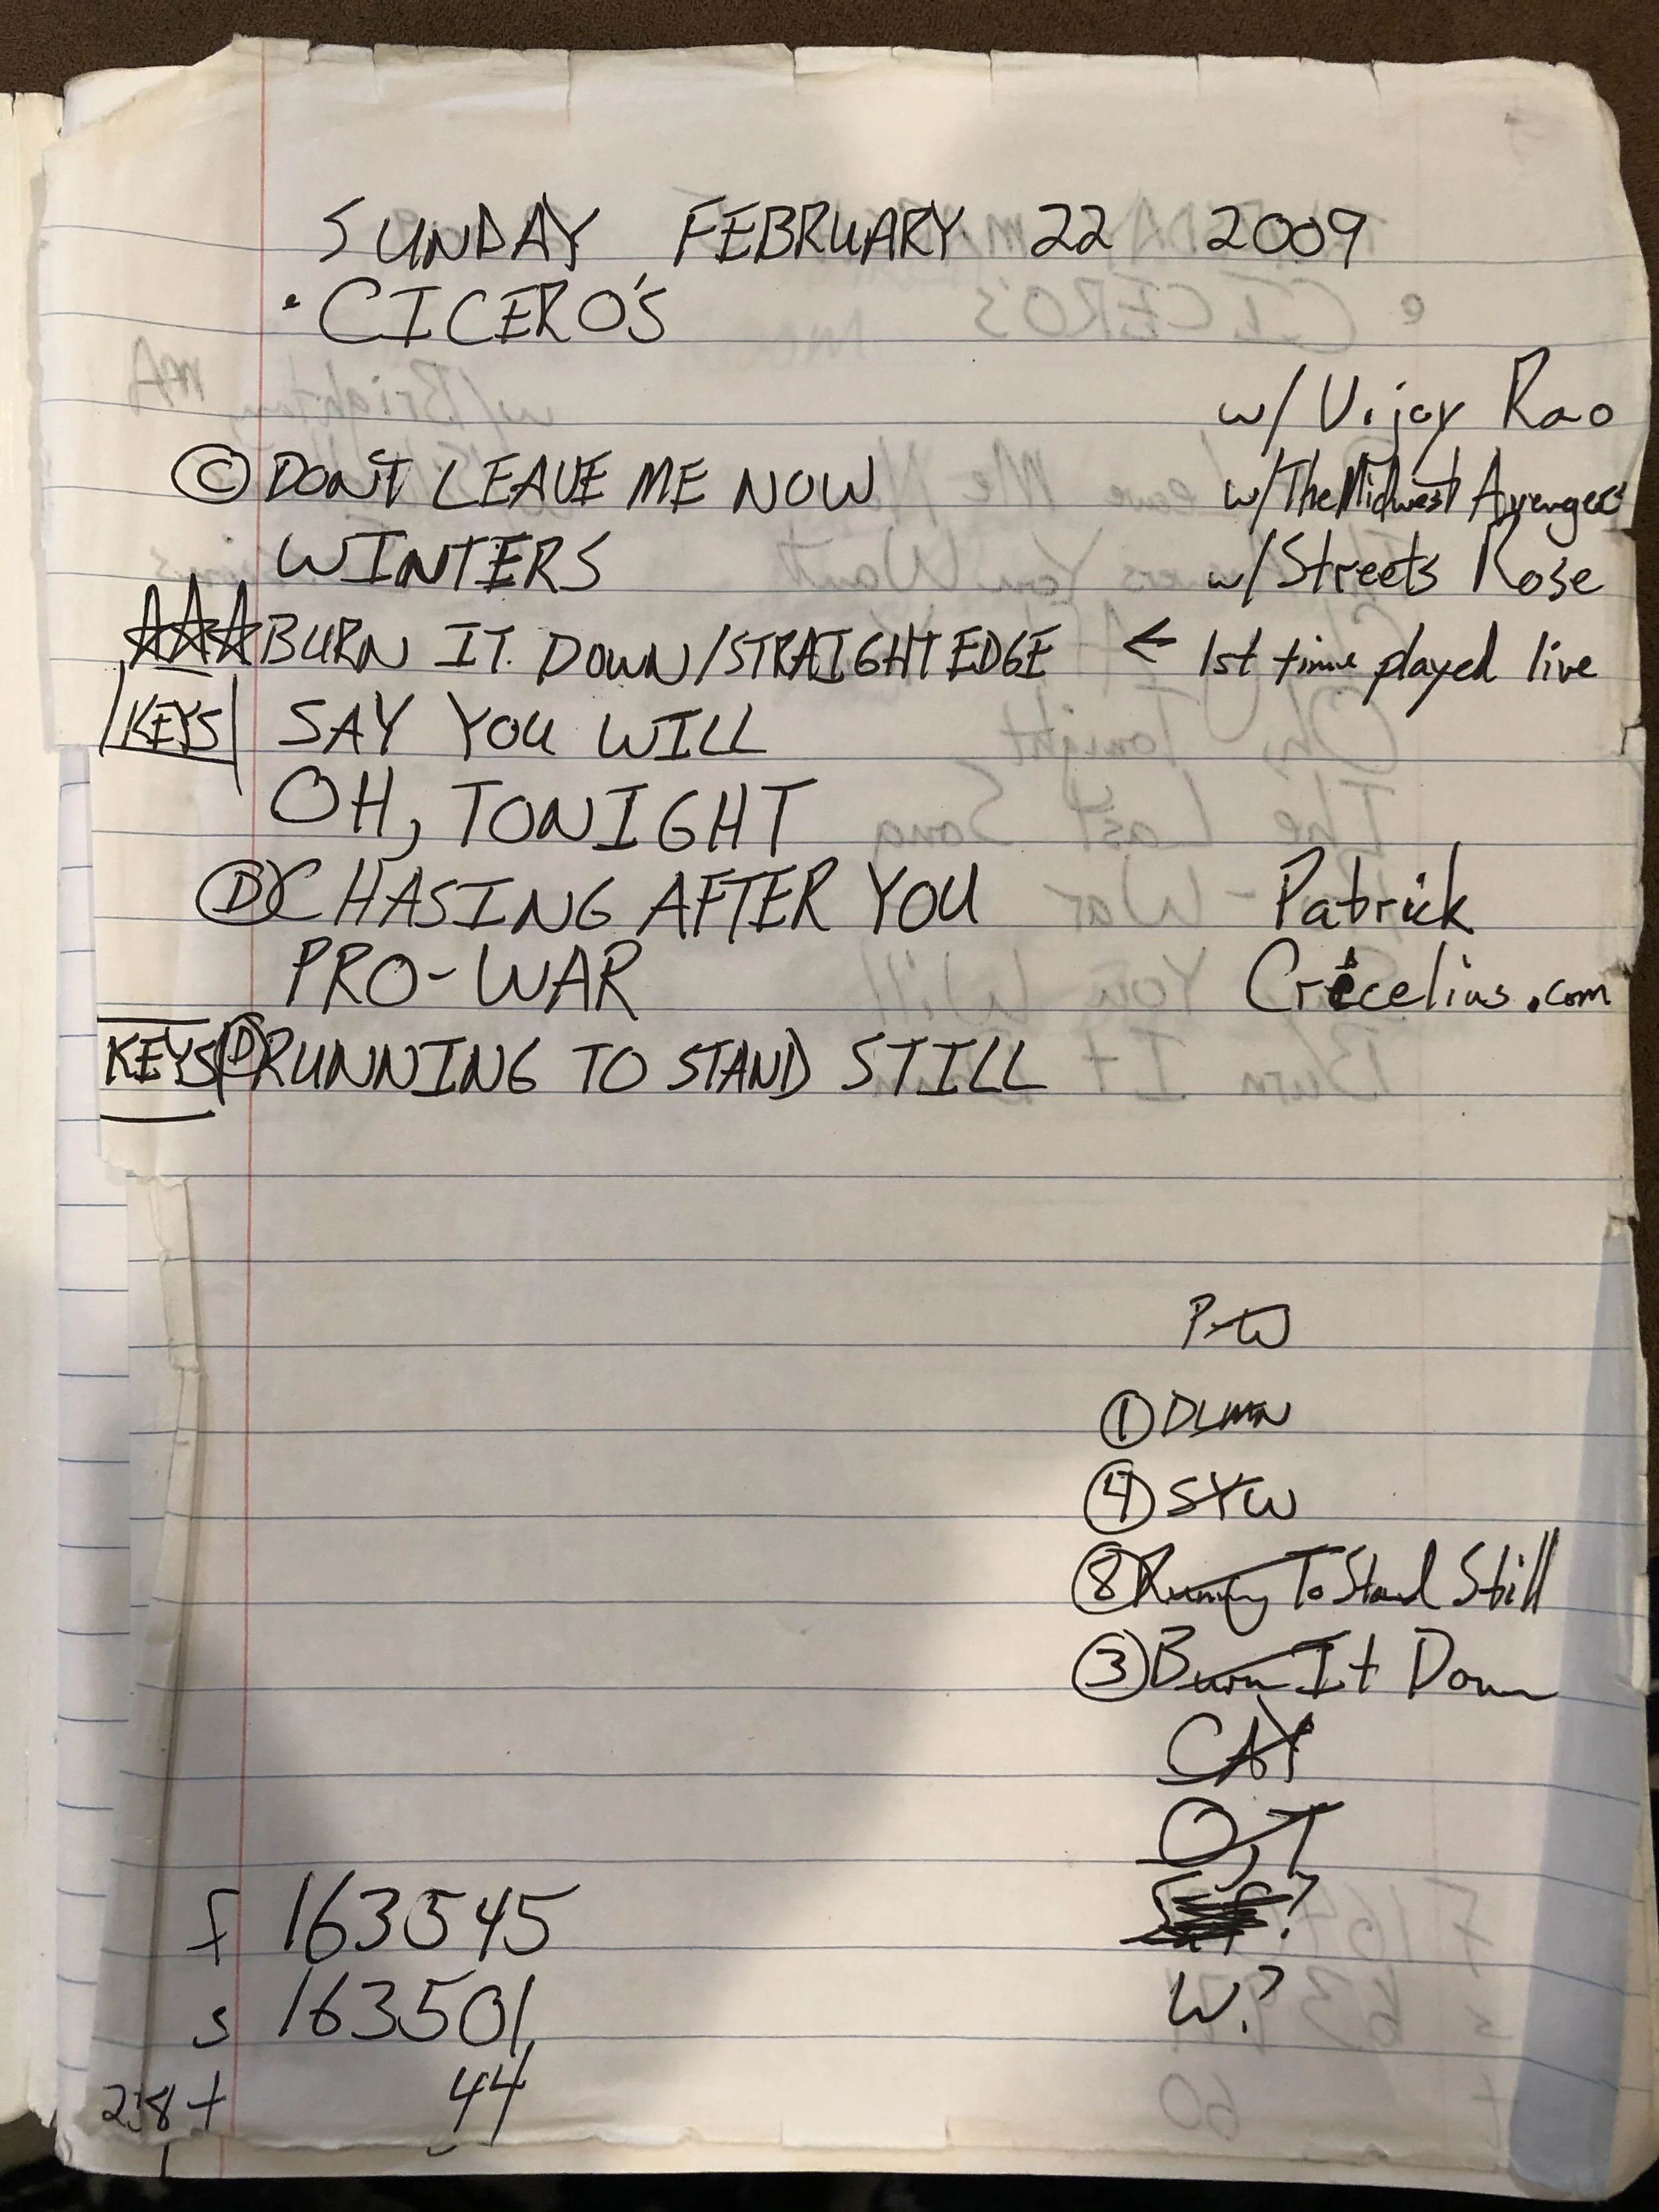 SUNDAY FEBRUARY 22 2009
• CICERO'S
w/ Vijay Rao
Ⓒ DON'T LEAVE ME NOW w/ The Midwest Avengers
WINTERS w/ Streets Rose
☆☆☆ BURN IT DOWN/STRAIGHT EDGE ← 1st time played live
KEYS SAY YOU WILL
OH, TONIGHT
Ⓓ CHASING AFTER YOU Patrick
PRO-WAR Crecelius.com
KEYS Ⓓ RUNNING TO STAND STILL
P-W
① DLMN
④ SYW
⑧ Running To Stand Still
③ Burn It Down
CAY
O,T
?
W?
f 163545
s 163501
t 44